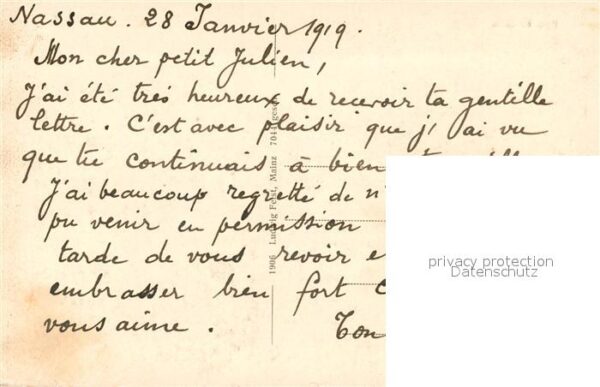 Nassau. 28 Janvier 1919.
Mon cher petit Julien,
J'ai été très heureux de recevoir ta gentille
lettre. C'est avec plaisir que j'ai vu
que tu continuais à bien
J'ai beaucoup regretté de n'
pu venir en permission
tarde de vous revoir e
embrasser bien fort
vous aime. Ton
1906 Ludwig Feist, Mainz
privacy protection
Datenschutz